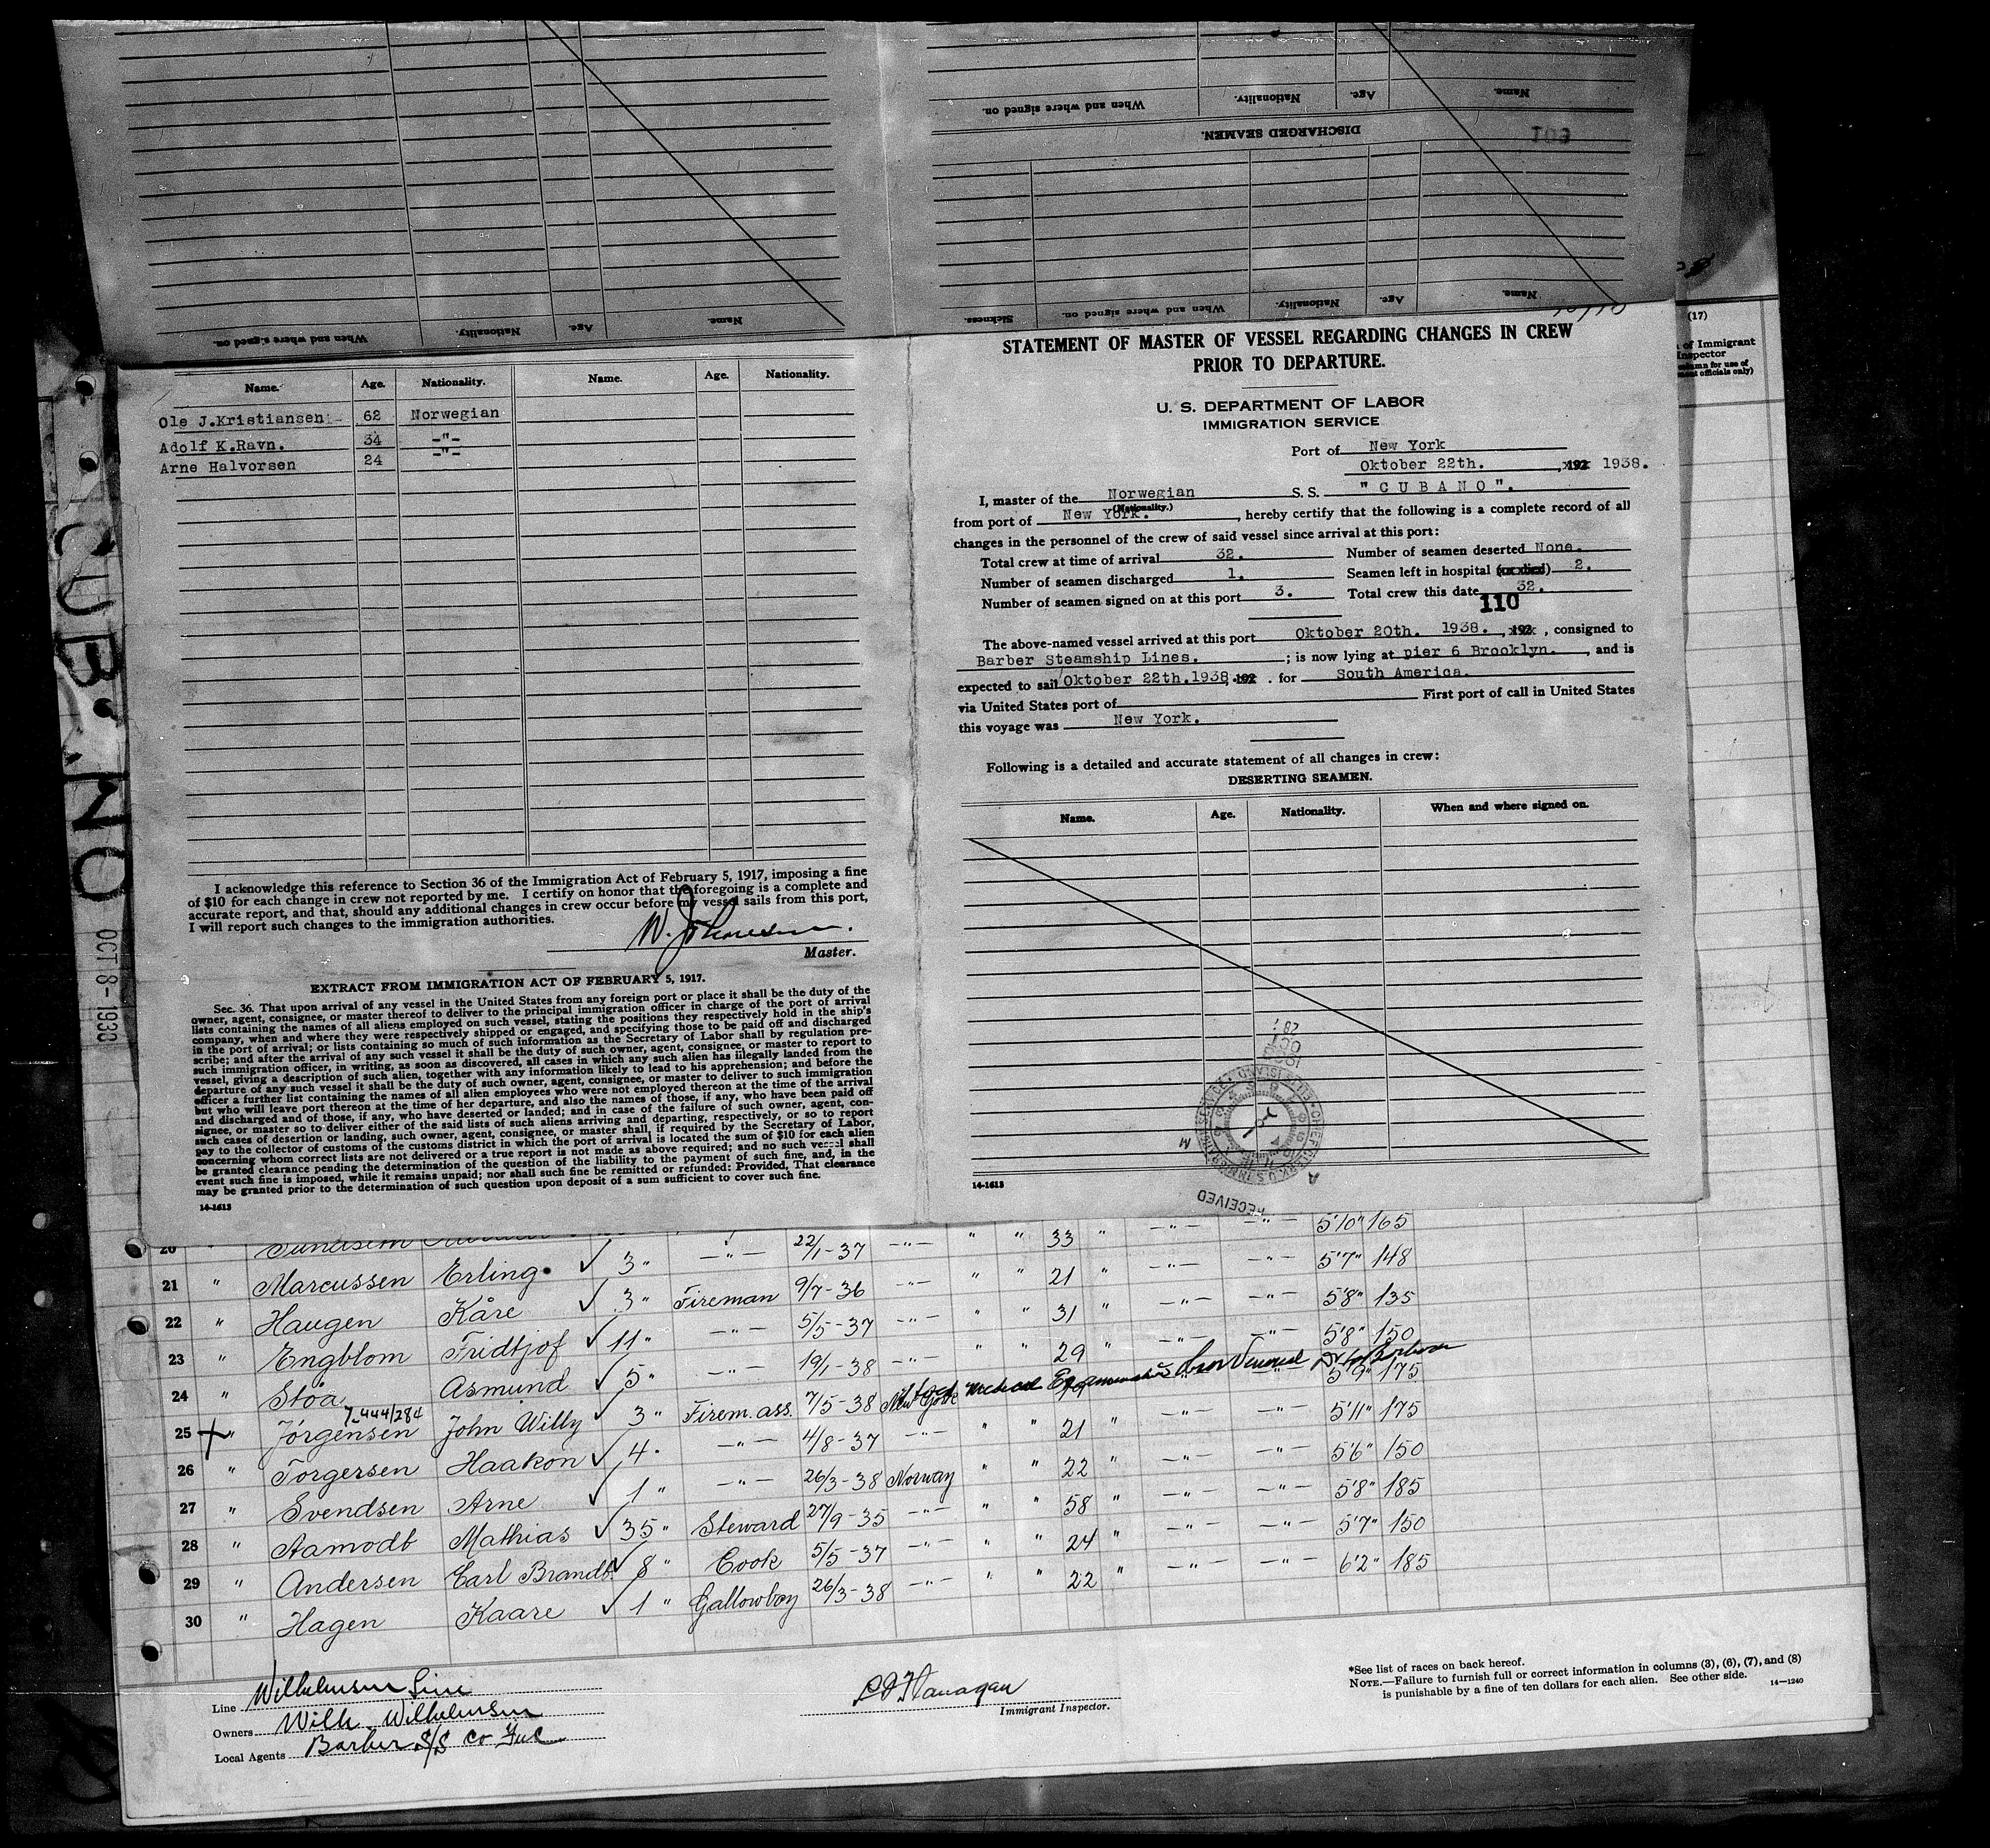 When and where signed on.
Nationality.
Age.
Name.
When and where signed on.
Nationality.
Age.
Name.
DISCHARGED SEAMEN.
Sickness.
When and where signed on.
Nationality.
Age.
Name.
(17)
of Immigrant
Inspector
column for use of
officials only)
CUB NO
OCT 8-1938
Name. Age. Nationality. Name. Age. Nationality.
Ole J.Kristiansen 62 Norwegian
Adolf K.Ravn. 34 -"-
Arne Halvorsen 24 -"-
I acknowledge this reference to Section 36 of the Immigration Act of February 5, 1917, imposing a fine
of $10 for each change in crew not reported by me. I certify on honor that the foregoing is a complete and
accurate report, and that, should any additional changes in crew occur before my vessel sails from this port,
I will report such changes to the immigration authorities.
Master.
EXTRACT FROM IMMIGRATION ACT OF FEBRUARY 5, 1917.
Sec. 36. That upon arrival of any vessel in the United States from any foreign port or place it shall be the duty of the
owner, agent, consignee, or master thereof to deliver to the principal immigration officer in charge of the port of arrival
lists containing the names of all aliens employed on such vessel, stating the positions they respectively hold in the ship's
company, when and where they were respectively shipped or engaged, and specifying those to be paid off and discharged
in the port of arrival; or lists containing so much of such information as the Secretary of Labor shall by regulation pre-
scribe; and after the arrival of any such vessel it shall be the duty of such owner, agent, consignee, or master to report to
such immigration officer, in writing, as soon as discovered, all cases in which any such alien has illegally landed from the
vessel, giving a description of such alien, together with any information likely to lead to his apprehension; and before the
departure of any such vessel it shall be the duty of such owner, agent, consignee, or master to deliver to such immigration
officer a further list containing the names of all alien employees who were not employed thereon at the time of the arrival
but who will leave port thereon at the time of her departure, and also the names of those, if any, who have been paid off
and discharged and of those, if any, who have deserted or landed; and in case of the failure of such owner, agent, con-
signee, or master so to deliver either of the said lists of such aliens arriving and departing, respectively, or so to report
such cases of desertion or landing, such owner, agent, consignee, or master shall, if required by the Secretary of Labor,
pay to the collector of customs of the customs district in which the port of arrival is located the sum of $10 for each alien
concerning whom correct lists are not delivered or a true report is not made as above required; and no such vessel shall
be granted clearance pending the determination of the question of the liability to the payment of such fine, and, in the
event such fine is imposed, while it remains unpaid; nor shall such fine be remitted or refunded: Provided, That clearance
may be granted prior to the determination of such question upon deposit of a sum sufficient to cover such fine.
14-1613
STATEMENT OF MASTER OF VESSEL REGARDING CHANGES IN CREW
PRIOR TO DEPARTURE.
U. S. DEPARTMENT OF LABOR
IMMIGRATION SERVICE
Port of New York
Oktober 22th. , 192 1938.
I, master of the Norwegian S. S. "CUBANO".
(Nationality.)
from port of New York. , hereby certify that the following is a complete record of all
changes in the personnel of the crew of said vessel since arrival at this port:
Total crew at time of arrival 32. Number of seamen deserted None.
Number of seamen discharged 1. Seamen left in hospital (or died) 2.
Number of seamen signed on at this port 3. Total crew this date 32.
110
The above-named vessel arrived at this port Oktober 20th. 1938. , 192 , consigned to
Barber Steamship Lines. ; is now lying at pier 6 Brooklyn. , and is
expected to sail Oktober 22th.1938, 192 . for South America.
via United States port of First port of call in United States
this voyage was New York.
Following is a detailed and accurate statement of all changes in crew:
DESERTING SEAMEN.
Name. Age. Nationality. When and where signed on.
RECEIVED
14-1613
20 22/1-37 -"- " " 33 " -"- -"- 5'10" 165
21 " Marcussen Erling ✓ 3" -"- 9/7-36 -"- " " 21 " -"- -"- 5'7" 148
22 " Haugen Kåre ✓ 3" Fireman 5/5-37 -"- " " 31 " -"- -"- 5'8" 135
23 " Engblom Fridtjof ✓ 11" -"- 19/1-38 -"- " " 29 " -"- -"- 5'8" 150
24 " Stöa Asmund ✓ 5" -"- 7/5-38 New York 5'9" 175
7-444/284
25 " Jörgensen John Willy ✓ 3" Firem. ass. 4/8-37 -"- " " 21 " -"- -"- 5'11" 175
26 " Torgersen Haakon ✓ 4" -"- 26/3-38 Norway " " 22 " -"- -"- 5'6" 150
27 " Svendsen Arne ✓ 1" Steward 27/9-35 -"- " " 58 " -"- -"- 5'8" 185
28 " Aamodt Mathias ✓ 35" Cook 5/5-37 -"- " " 24 " -"- -"- 5'7" 150
29 " Andersen Carl Brandt ✓ 8" Gallowboy 26/3-38 -"- " " 22 " -"- -"- 6'2" 185
30 " Hagen Kaare ✓ 1"
Line Wilhelmsen Line
Owners Wilh. Wilhelmsen
Local Agents Barber S/S Co Inc
Flanagan
Immigrant Inspector.
*See list of races on back hereof.
NOTE.—Failure to furnish full or correct information in columns (3), (6), (7), and (8)
is punishable by a fine of ten dollars for each alien. See other side. 14—1240